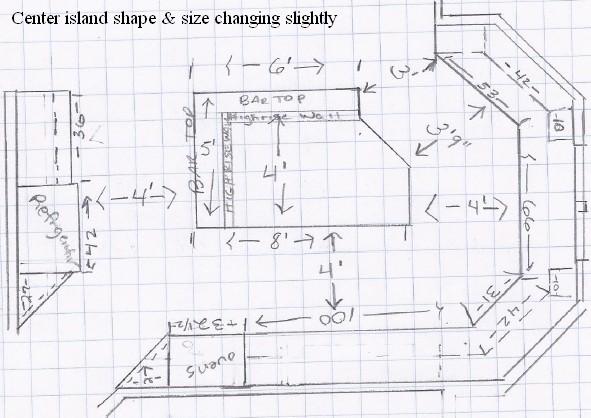 Center island shape & size changing slightly
6'
3
42
53
BAR TOP
Highrise Wall
10
36
BAR TOP
5'
HIGHRISE WALL
3'9"
4'
4'
4'
66
Refrigerator
42
8'
4'
10
31
42
22
100
32 1/2
ovens